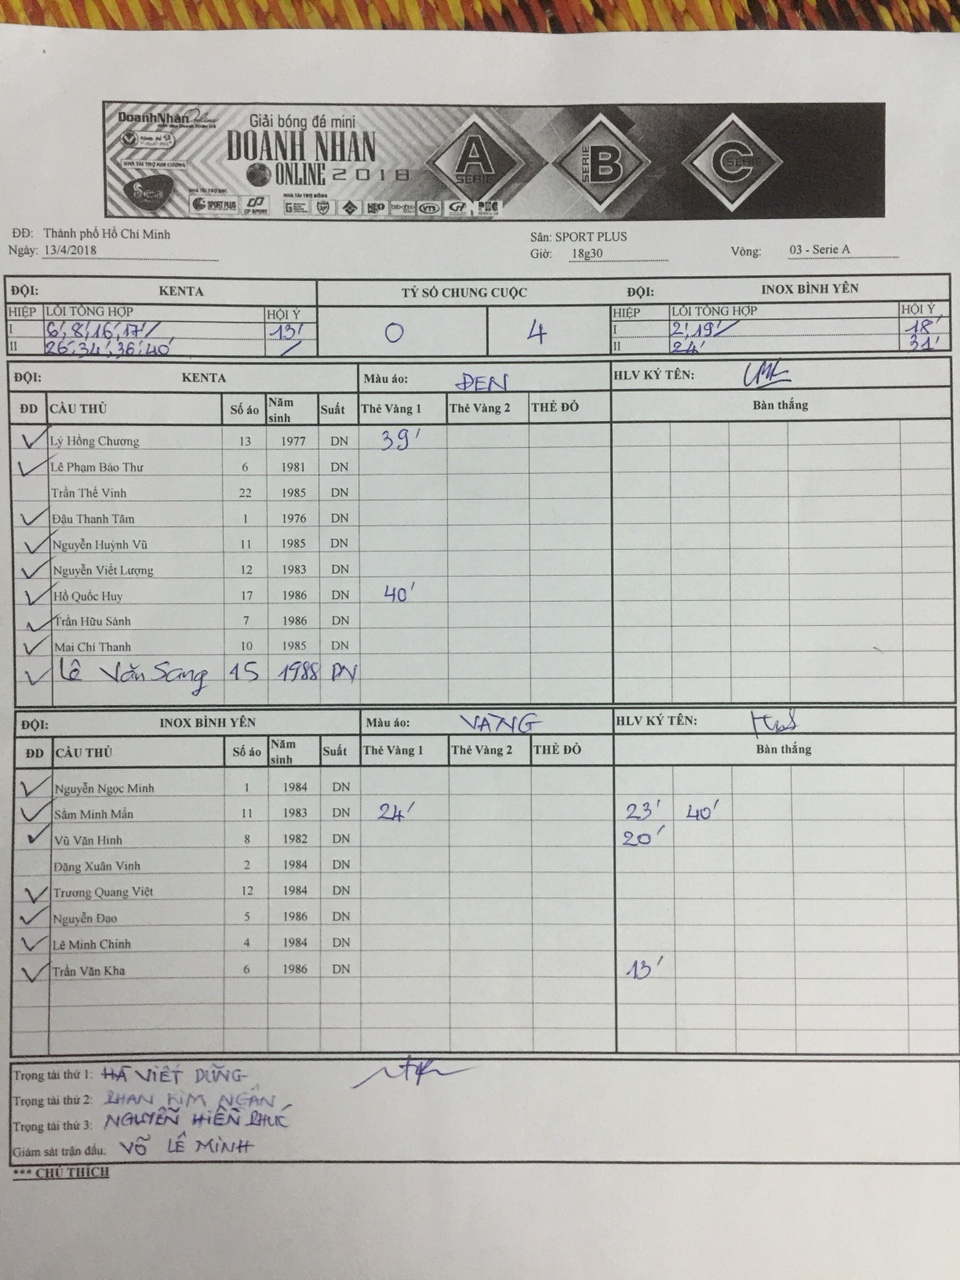 DoanhNhân Online
Giải bóng đá mini
DOANH NHÂN
ONLINE 2018
NHÀ TÀI TRỢ KIM CƯƠNG
Sea
NHÀ TÀI TRỢ BẠC
SPORT PLUS CP SPORT
NHÀ TÀI TRỢ ĐỒNG
VTS
A SERIE
SERIE B
C SERIE
ĐĐ: Thành phố Hồ Chí Minh Sân: SPORT PLUS
Ngày: 13/4/2018 Giờ: 18g30 Vòng: 03 - Serie A
ĐỘI: KENTA TỶ SỐ CHUNG CUỘC ĐỘI: INOX BÌNH YÊN
HIỆP LỖI TỔNG HỢP HỘI Ý HIỆP LỖI TỔNG HỢP HỘI Ý
I 6', 8', 16', 17' 13' 0 4 I 2', 19' 18'
II 26', 34', 36', 40' / II 24' 31'
ĐỘI: KENTA Màu áo: ĐEN HLV KÝ TÊN:
ĐD CẦU THỦ Số áo Năm sinh Suất Thẻ Vàng 1 Thẻ Vàng 2 THẺ ĐỎ Bàn thắng
✓ Lý Hồng Chương 13 1977 DN 39'
✓ Lê Phạm Bảo Thư 6 1981 DN
Trần Thế Vinh 22 1985 DN
✓ Đậu Thanh Tâm 1 1976 DN
✓ Nguyễn Huỳnh Vũ 11 1985 DN
✓ Nguyễn Viết Lượng 12 1983 DN
✓ Hồ Quốc Huy 17 1986 DN 40'
✓ Trần Hữu Sánh 7 1986 DN
✓ Mai Chí Thanh 10 1985 DN
✓ Lê Văn Sang 15 1988 DN
ĐỘI: INOX BÌNH YÊN Màu áo: VÀNG HLV KÝ TÊN:
ĐD CẦU THỦ Số áo Năm sinh Suất Thẻ Vàng 1 Thẻ Vàng 2 THẺ ĐỎ Bàn thắng
✓ Nguyễn Ngọc Minh 1 1984 DN
✓ Sầm Minh Mẫn 11 1983 DN 24' 23' 40'
✓ Vũ Văn Hinh 8 1982 DN 20'
Đặng Xuân Vinh 2 1984 DN
✓ Trương Quang Việt 12 1984 DN
✓ Nguyễn Đạo 5 1986 DN
✓ Lê Minh Chính 4 1984 DN
✓ Trần Văn Kha 6 1986 DN 13'
Trọng tài thứ 1: HÀ VIẾT DŨNG
Trọng tài thứ 2: PHAN KIM NGÂN
Trọng tài thứ 3: NGUYỄN HIỀN PHÚC
Giám sát trận đấu: VÕ LÊ MINH
*** CHÚ THÍCH